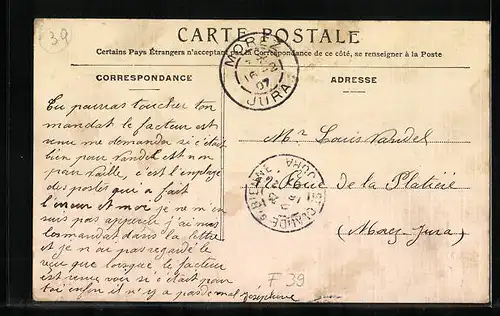 39
CARTE POSTALE
Certains Pays Étrangers n'acceptant pas la Correspondance de ce côté, se renseigner à la Poste
CORRESPONDANCE
ADRESSE
MOREZ
16
07
JURA
Tu pourras toucher ton
mandat le facteur est
venu me demander si c'était
bien pour Vandel et non
pour c'est l'employé
des postes qui a fait
l'erreur et moi je ne m'en
suis pas aperçue j'ai mis
le mandat dans la lettre
et je n'ai pas regardé le
reçu que lorsque le facteur
est venu voir si c'était pour
toi enfin il n'y a pas de mal Joséphine
Mr Louis Vandel
Rue de la Platière
(Morez-Jura)
ST CLAUDE
JURA
16
F 39